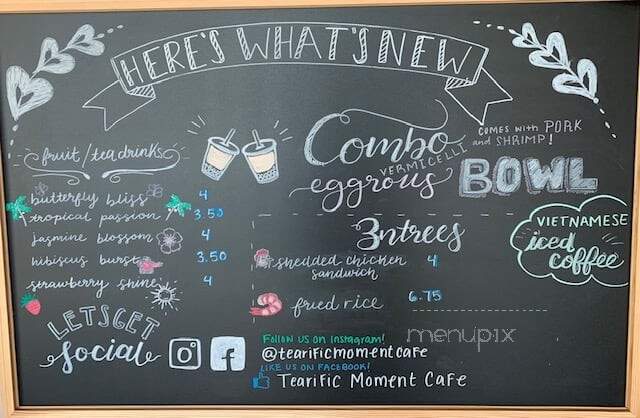 HERE'S WHAT'S NEW
fruit/tea drinks
butterfly bliss 4
tropical passion 3.50
jasmine blossom 4
hibiscus burst 3.50
strawberry shine 4
LETS GET
social
f
Combo
VERMICELLI
eggrous BOWL
COMES WITH PORK
and SHRIMP!
3ntrees
shedded chicken 4
sandwich
fried rice 6.75
VIETNAMESE
iced
coffee
menupix
FOLLOW US ON Instagram!
@tearificmomentcafe
LIKE US ON FACEBOOK!
Tearific Moment Cafe